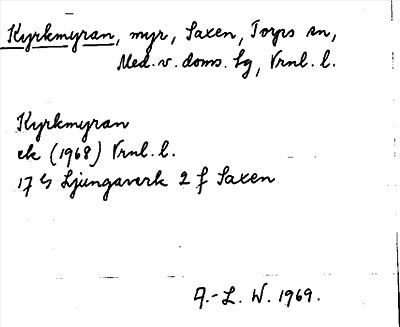 Kyrkmyran, myr, Saxen, Torps sn,
Med.v. doms. lg, Vrnl. l.
Kyrkmyran
ek (1968) Vrnl. l.
17 G Ljungaverk 2 f Saxen
A.-L. W. 1969.